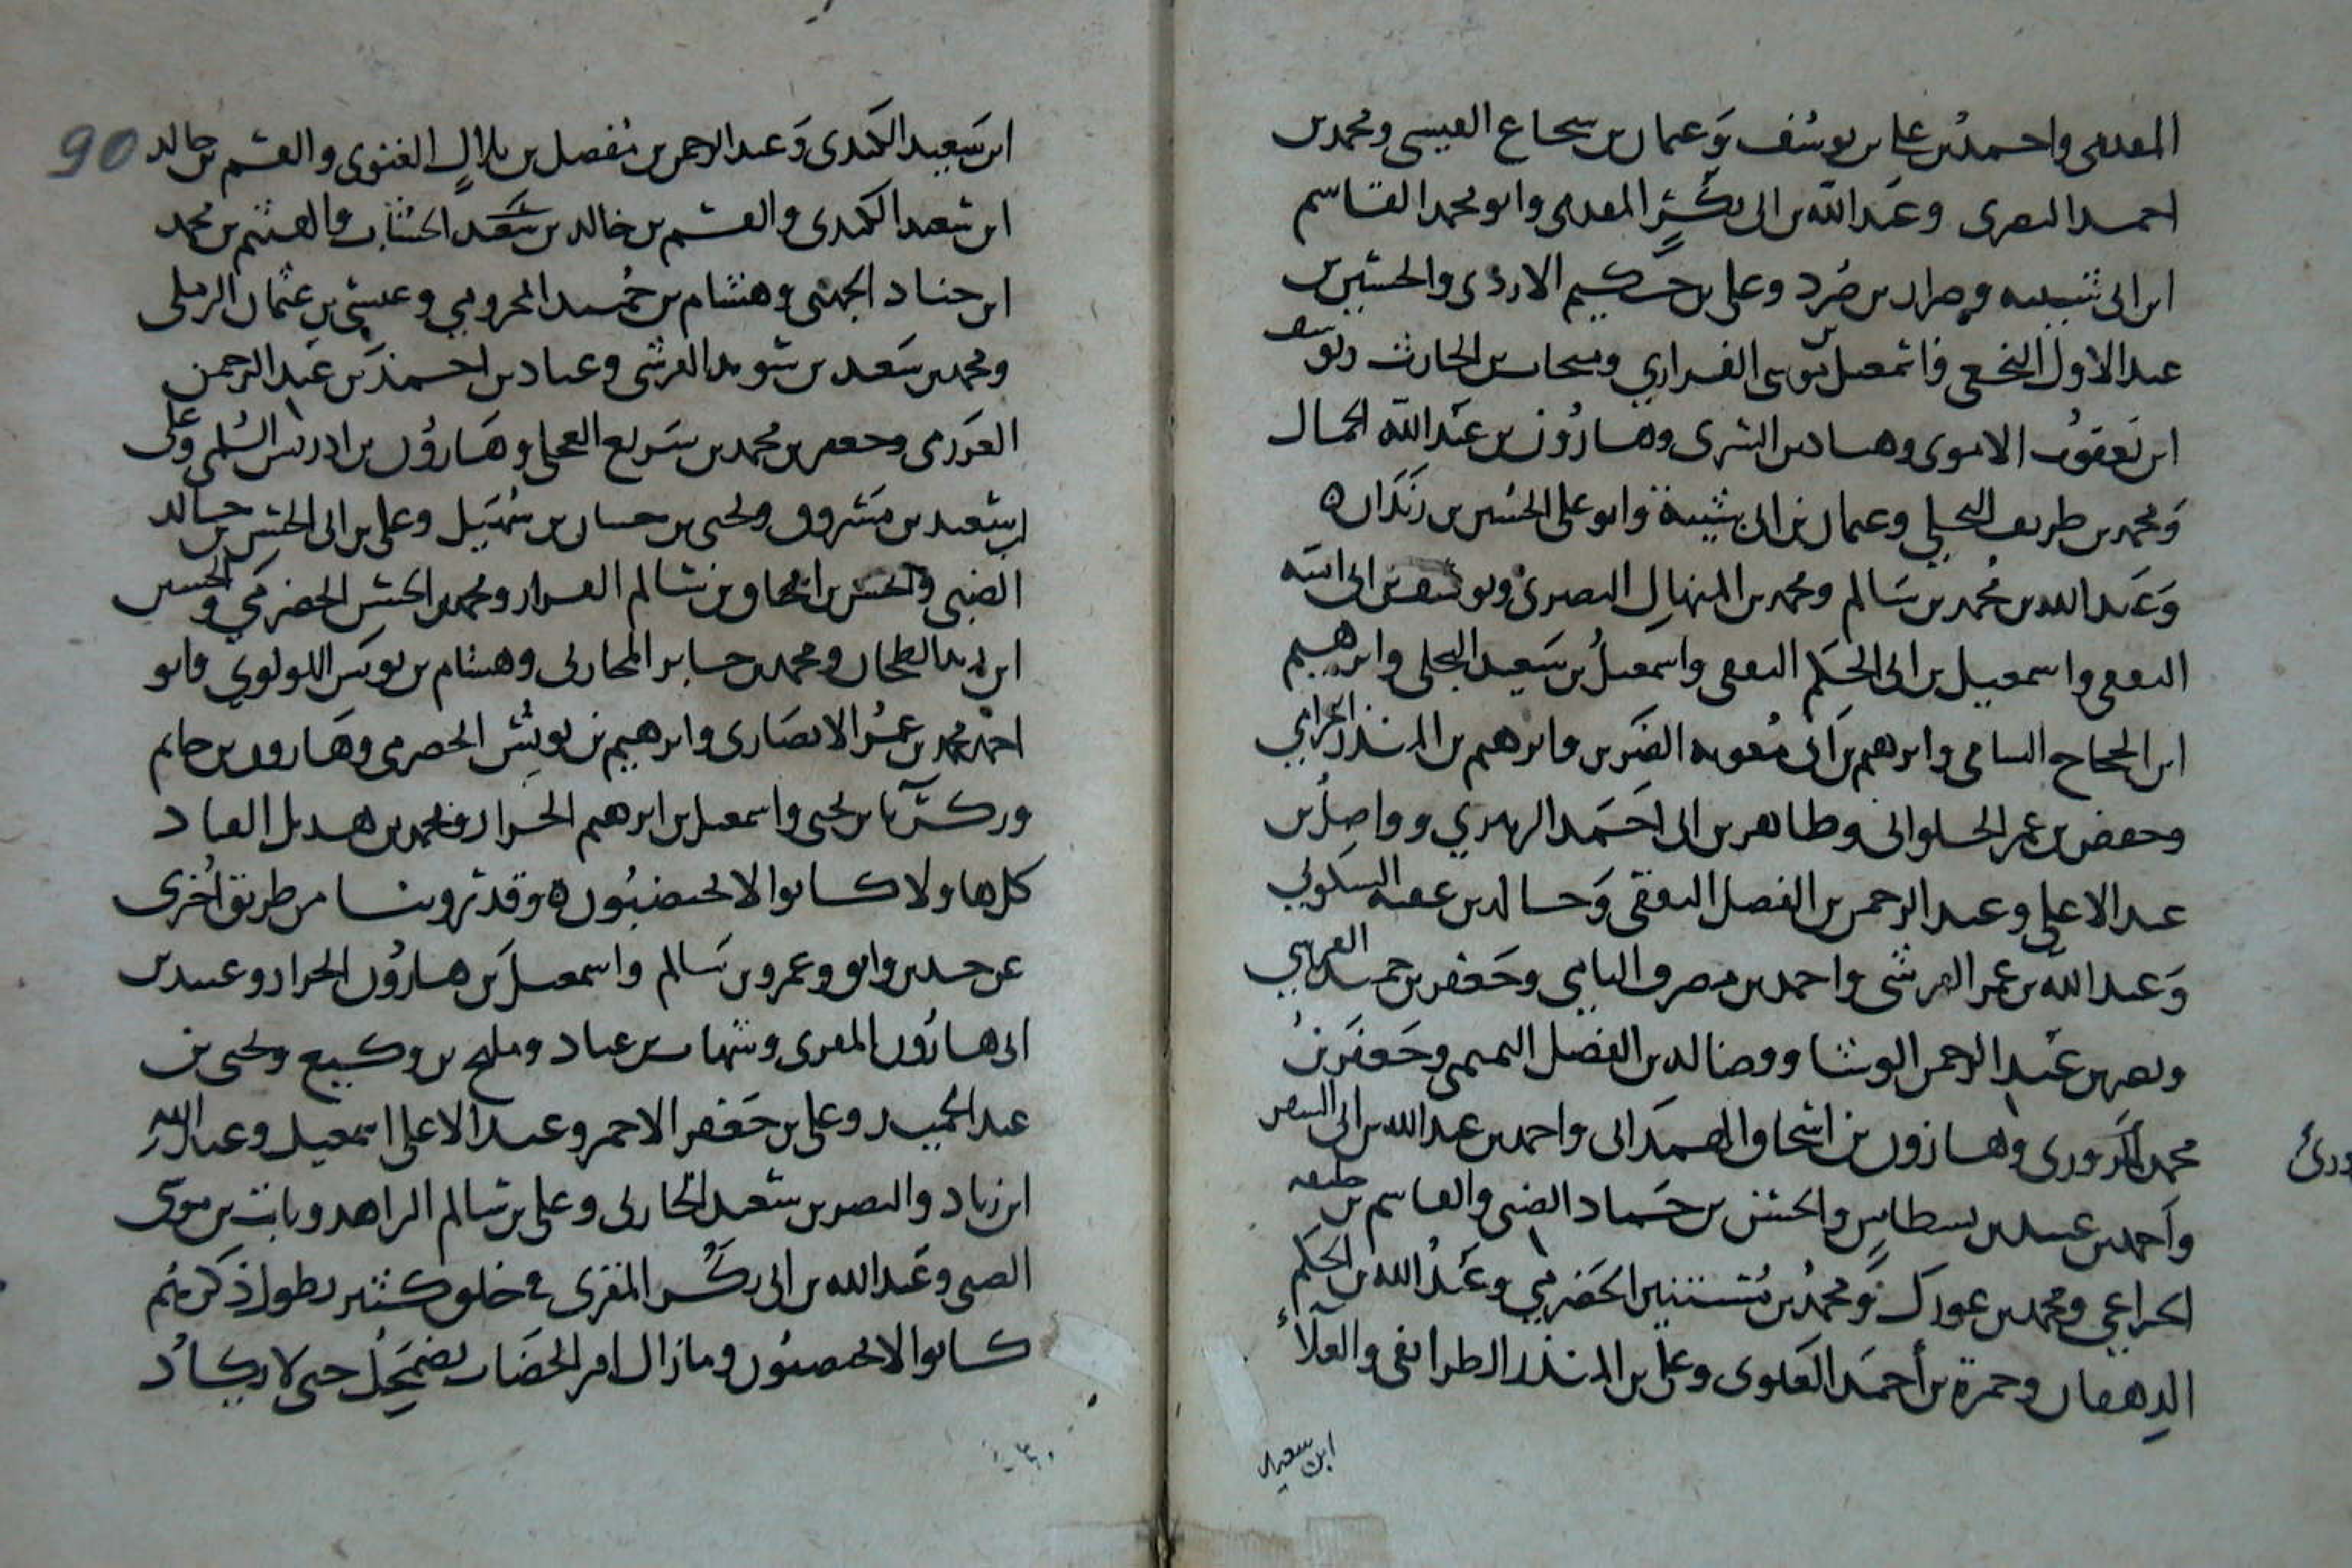 واحمد بن علي بن يوسف وعمان بن سحاع العبسى ومحمد بن
احمد البصرى وعبد الله بن ابى بكر المقدمى وابو محمد القاسم
ابن ابى شيبه وضرار بن صرد وعلى بن حكيم الاودى والحسين بن
عبد الاول النخعى واسمعيل بن موسى الفزاري ومنجاب بن الحارث ويوسف
ابن يعقوب الاموى وهناد بن السرى وهارون بن عبد الله الحمال
ومحمد بن طريف البجلي وعمان بن ابى شيبة وابو على الحسين بن
وعبد الله بن محمد بن سالم ومحمد بن المنهال البصرى ويوسف بن ابى اميه
الثقفى واسمعيل بن ابى الحكم الثقفى واسمعيل بن سعيد البجلى وابرهيم
ابن الحجاج السامى وابرهيم بن ابى معويه الضرير وابرهيم بن المنذر الحزامي
وحفص بن عمر الحلوانى وطاهر بن ابى احمد الزبيري وواصل بن
عبد الاعلى وعبد الرحمن بن الفضل وخالد بن عقبه السكوني
وعبد الله بن عمر القرشى واحمد بن مصرف اليامي وجعفر بن حميد
ونصر بن عبد الرحمن الوشا ووضالد بن الفضل التميمى وجعفر بن
محمد وهارون بن اسحاق الهمدانى واحمد بن عبد الله بن ابى السفر
واحمد بن عبيد بن بسطاس والحسن بن حماد الضبى والقاسم بن خليفه
الخزاعي ومحمد بن ومحمد بن مستنير الحضرمي وعبد الله بن الحكم
الدهقان وحمزة بن أحمد العلوى وعلى بن المنذر الطرائفى والعلاء
ابن سعيد
90
ابن سعيد الكندى وعبد الرحمن بن مفضل بن بلال الغنوى والقسم بن خالد
ابن سعيد الكندى والقسم بن خالد بن سعد الخشاب والهيثم بن محمد
ابن جناد الجهنى وهشام بن حميد المخرومي وعيسى بن عثمان الرملى
ومحمد بن سعيد بن سويد القرشى وعباد بن احمد بن عبد الرحمن
العرزمى وجعفر بن محمد بن سريع العجلى وهارون بن ادريس السلمى وعلى
ابن سعيد بن مسروق ويحيى بن حسان بن سهيل وعلى بن ابى الحسن بن خالد
الضبى والحسن بن اسحاق بن سالم ومحمد بن الحسن الحضرمي والحسين
ابن يزيد الطحان ومحمد بن جابر المحاربى وهشام بن يونس اللولوي وابو
احمد محمد بن عمر الانصارى وابرهيم بن يونس الحضرمى وهارون بن حاتم
وزكريا بن يحيى واسمعيل بن ابرهيم ومحمد بن هديل القناد
كل هاولا كانوا لا يخضبون ه وقد روينا من طريق اخرى
عن وابو وعمرو بن سالم واسمعيل بن هارون وعبيد بن
ابى هارون المقرى وشهاب بن عباد ومليح بن وكيع ويحيى بن
عبد الحميد وعلى بن جعفر الاحمر وعبد الاعلى اسمعيل وعبد الله
ابن زياد والنصر بن سعيد الحاربى وعلى بن سالم الزاهد وثابت بن موسى
الضبى وعبد الله بن ابى المقرى فى خلق كثير يطول ذكرهم
كانوا لا يخضبون ومازال امر الخضاب يضمحل حتى لا يكاد